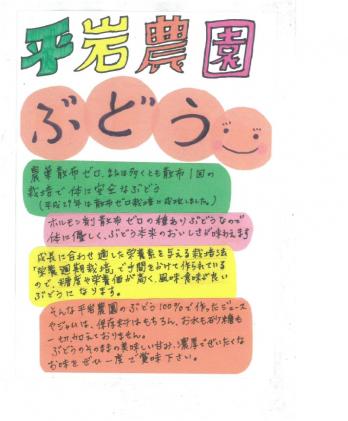 平岩農園
ぶどう
農薬散布ゼロ、または多くとも散布1回の
栽培で体に安全なぶどう
(平成27年は散布ゼロ栽培に成功しました)
ホルモン剤散布ゼロの種ありぶどうなので
体に優しく、ぶどう本来のおいしさが味わえます
成長に合わせ適した栄養素を与える栽培法
「栄養週期栽培」で手間をかけて作られている
ので、糖度や栄養価が高く、風味・食味が良い
ぶどうになります。
そんな平岩農園のぶどう100%で作ったジュース
やジャムは、保存料はもちろん、お水も砂糖も
一切加えておりません。
ぶどうのそのままの美味しい甘み、濃厚でぜいたくな
お味をぜひ一度ご賞味下さい。